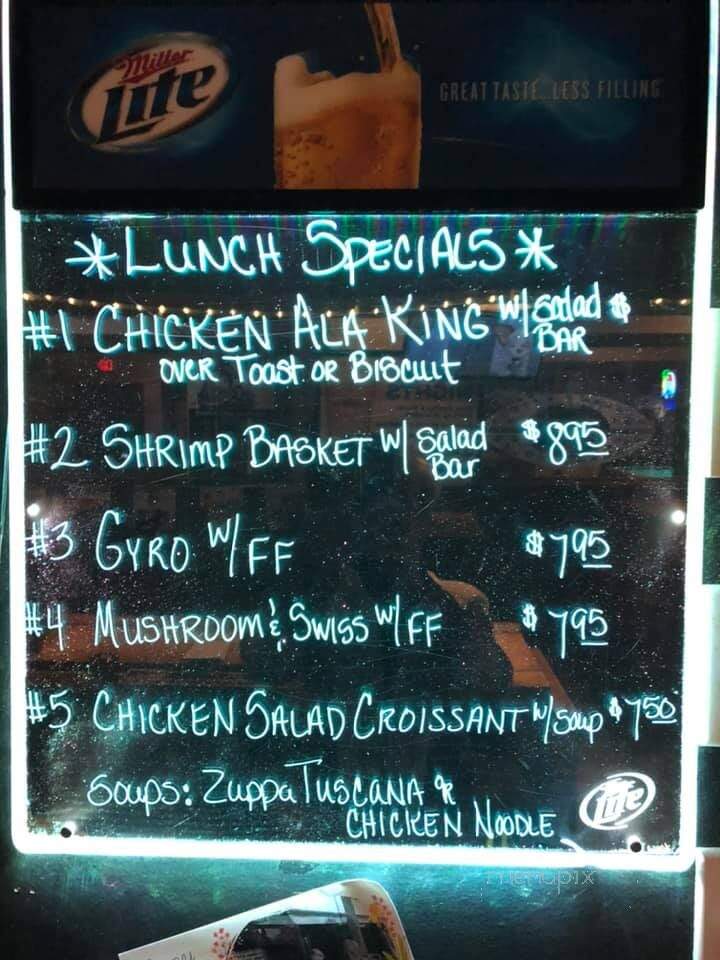 Miller
Lite
GREAT TASTE...LESS FILLING
*LUNCH SPECIALS*
#1 CHICKEN ALA KING w/ Salad $
BAR
OVER TOAST OR BISCUIT
#2 SHRIMP BASKET w/ Salad $8.95
Bar
#3 GYRO w/FF $7.95
#4 MUSHROOM & SWISS w/FF $7.95
#5 CHICKEN SALAD CROISSANT w/Soup $7.50
Soups: Zuppa TUSCANA or
CHICKEN NOODLE
Lite
menupix